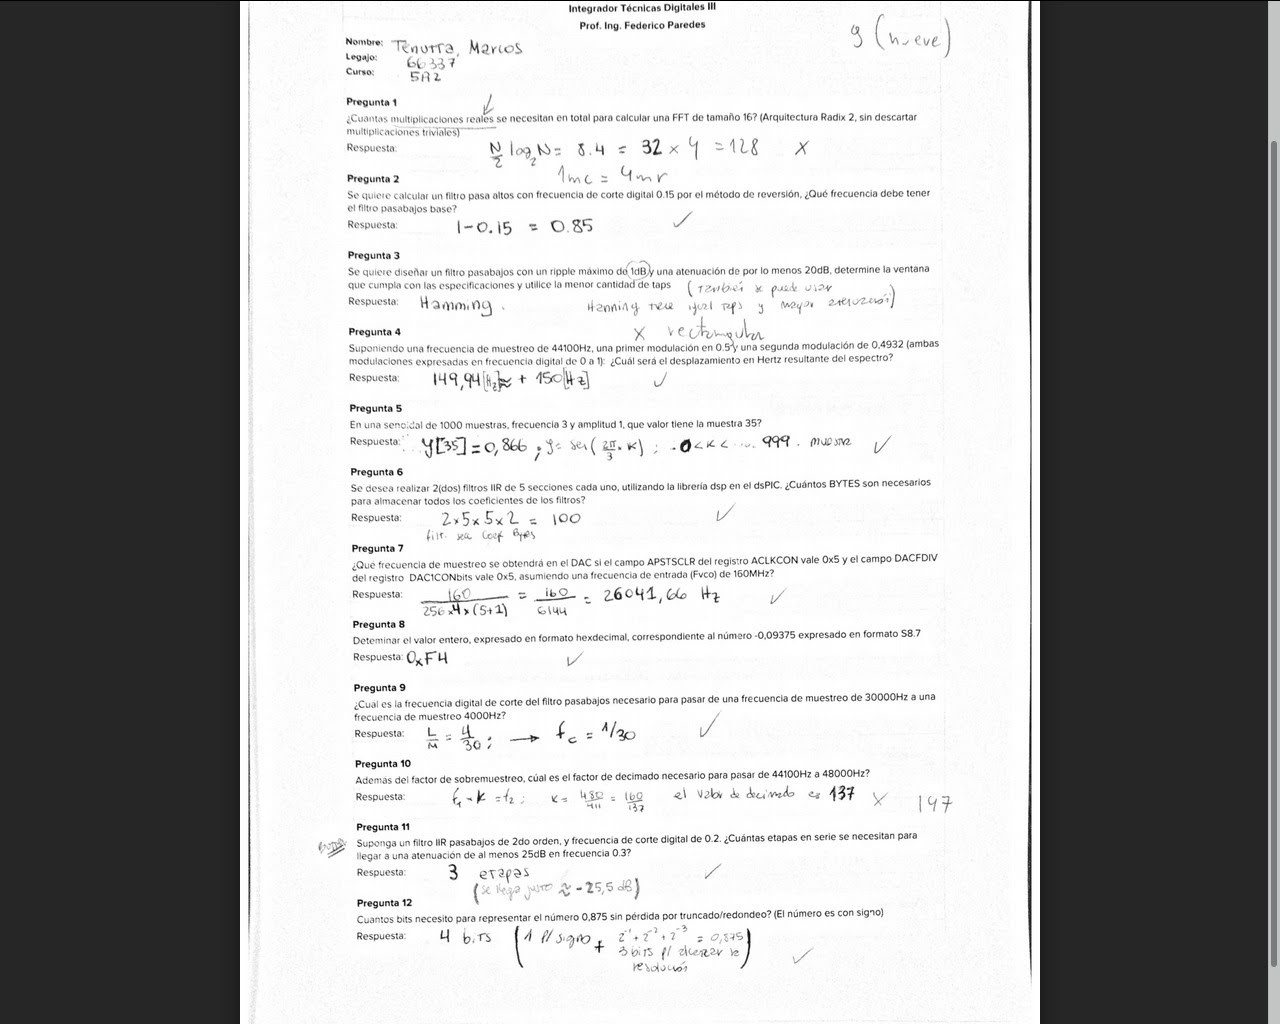 Integrador Técnicas Digitales III
Prof. Ing. Federico Paredes
9 (nueve)
Nombre: Tenutta, Marcos
Legajo: 66337
Curso: 5R2
Pregunta 1
¿Cuantas multiplicaciones reales se necesitan en total para calcular una FFT de tamaño 16? (Arquitectura Radix 2, sin descartar
multiplicaciones triviales)
Respuesta: N/2 log2 N = 8.4 = 32 × 4 = 128 X
1mc = 4mr
Pregunta 2
Se quiere calcular un filtro pasa altos con frecuencia de corte digital 0.15 por el método de reversión, ¿Qué frecuencia debe tener
el filtro pasabajos base?
Respuesta: 1-0.15 = 0.85 ✓
Pregunta 3
Se quiere diseñar un filtro pasabajos con un ripple máximo de 1dB y una atenuación de por lo menos 20dB, determine la ventana
que cumpla con las especificaciones y utilice la menor cantidad de taps (también se puede usar
Respuesta: Hamming. Hanning tiene igual taps y mayor atenuación)
X rectangular
Pregunta 4
Suponiendo una frecuencia de muestreo de 44100Hz, una primer modulación en 0.5 y una segunda modulación de 0,4932 (ambas
modulaciones expresadas en frecuencia digital de 0 a 1): ¿Cuál será el desplazamiento en Hertz resultante del espectro?
Respuesta: 149,94[Hz] ≈ + 150[Hz] ✓
Pregunta 5
En una senoidal de 1000 muestras, frecuencia 3 y amplitud 1, que valor tiene la muestra 35?
Respuesta: y[35] = 0,866 ; y = sen(2π/3 . k) ; 0<k< ... 999. muestra ✓
Pregunta 6
Se desea realizar 2(dos) filtros IIR de 5 secciones cada uno, utilizando la librería dsp en el dsPIC. ¿Cuántos BYTES son necesarios
para almacenar todos los coeficientes de los filtros?
Respuesta: 2×5×5×2 = 100 ✓
filt. sec Coef Bytes
Pregunta 7
¿Qué frecuencia de muestreo se obtendrá en el DAC si el campo APSTSCLR del registro ACLKCON vale 0x5 y el campo DACFDIV
del registro DAC1CONbits vale 0x5, asumiendo una frecuencia de entrada (Fvco) de 160MHz?
Respuesta: 160/256×4×(5+1) = 160/6144 = 26041,66 Hz ✓
Pregunta 8
Deteminar el valor entero, expresado en formato hexdecimal, correspondiente al número -0,09375 expresado en formato S8.7
Respuesta: 0xF4 ✓
Pregunta 9
¿Cual es la frecuencia digital de corte del filtro pasabajos necesario para pasar de una frecuencia de muestreo de 30000Hz a una
frecuencia de muestreo 4000Hz?
Respuesta: L/M = 4/30 ; → fc = 1/30 ✓
Pregunta 10
Además del factor de sobremuestreo, cúal es el factor de decimado necesario para pasar de 44100Hz a 48000Hz?
Respuesta: f1 . k = f2 ; k = 480/411 = 160/137 el valor de decimado es 137 X 147
Pregunta 11
Suponga un filtro IIR pasabajos de 2do orden, y frecuencia de corte digital de 0.2. ¿Cuántas etapas en serie se necesitan para
llegar a una atenuación de al menos 25dB en frecuencia 0.3?
Respuesta: 3 etapas ✓
(se llega justo ≈ -25,5 dB)
Pregunta 12
Cuantos bits necesito para representar el número 0,875 sin pérdida por truncado/redondeo? (El número es con signo)
Respuesta: 4 bits (1 p/ signo + 2^-1 + 2^-2 + 2^-3 = 0,875
3 bits p/ alcanzar la
resolución) ✓